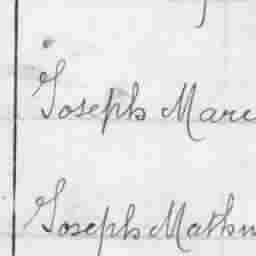 Joseph Marc
Joseph Mathu